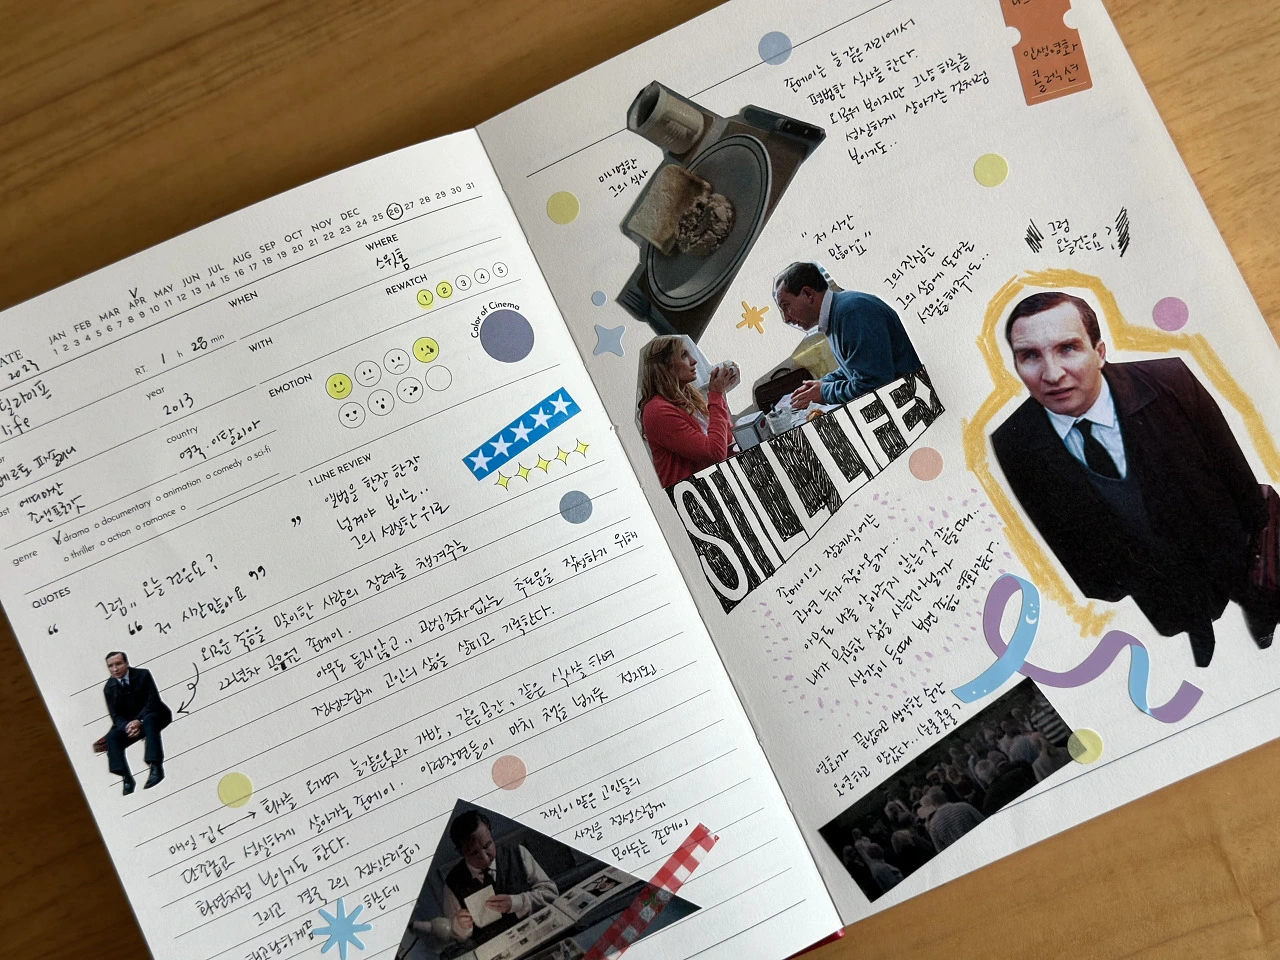 ATE
2023
JAN FEB MAR APR MAY JUN JUL AUG SEP OCT NOV DEC
1 2 3 4 5 6 7 8 9 10 11 12 13 14 15 16 17 18 19 20 21 22 23 24 25 26 27 28 29 30 31
WHEN
WHERE
스윗홈
틸라이프
life
RT. 1 h 28 min
WITH
REWATCH 1 2 3 4 5
year
2013
EMOTION
Color of Cinema
country
영국·이탈리아
베르토 파졸리니
ast 에디마산
조앤프로갓
genre
drama documentary animation comedy sci-fi
thriller action romance
1 LINE REVIEW
앨범을 한장 한장
넘겨야 보이는..
그의 성실한 위로
QUOTES
“ 그럼,, 오늘 건은요? ”
“ 저 시간많아요 ”
외로운 죽음을 맞이한 사람의 장례를 챙겨주는
22년차 공무원 존메이.
아무도 듣지않고,, 관심조차없는 추도문을 작성하기 위해
정성스럽게 고인의 삶을 살피고 기록한다.
매일 집 ↔ 회사를 오가며 늘같은옷과 가방, 같은공간, 같은 식사를 하며
단조롭고 성실하게 살아가는 존메이. 이런장면들이 마치 책을 넘기듯 정지된
화면처럼 보이기도 한다.
그리고 결국 그의 정성스러움이
하는데
자신이 맡은 고인들의
사진을 정성스럽게
모아두는 존메이
존메이는 늘 같은 자리에서
평범한 식사를 한다.
외로워 보이지만 그냥 하루를
성실하게 살아가는 것처럼
보이기도..
인생영화
콜렉션
미니멀한
그의 식사
“ 저 시간
많아요 ”
그의 진심은
그의 삶에 또다른
선물을 해주기도..
그럼
오늘건은요?
STILL LIFE
존메이의 장례식에는
과연 누가 찾아올까..
아무도 나를 알아주지 않는것 같을때..
내가 무용한 삶을 사는건아닐까
생각이 들때 보면 좋은 영화같다.
영화가 끝났다고 생각한 순간
오열하고 말았다.. (눈물콧물)